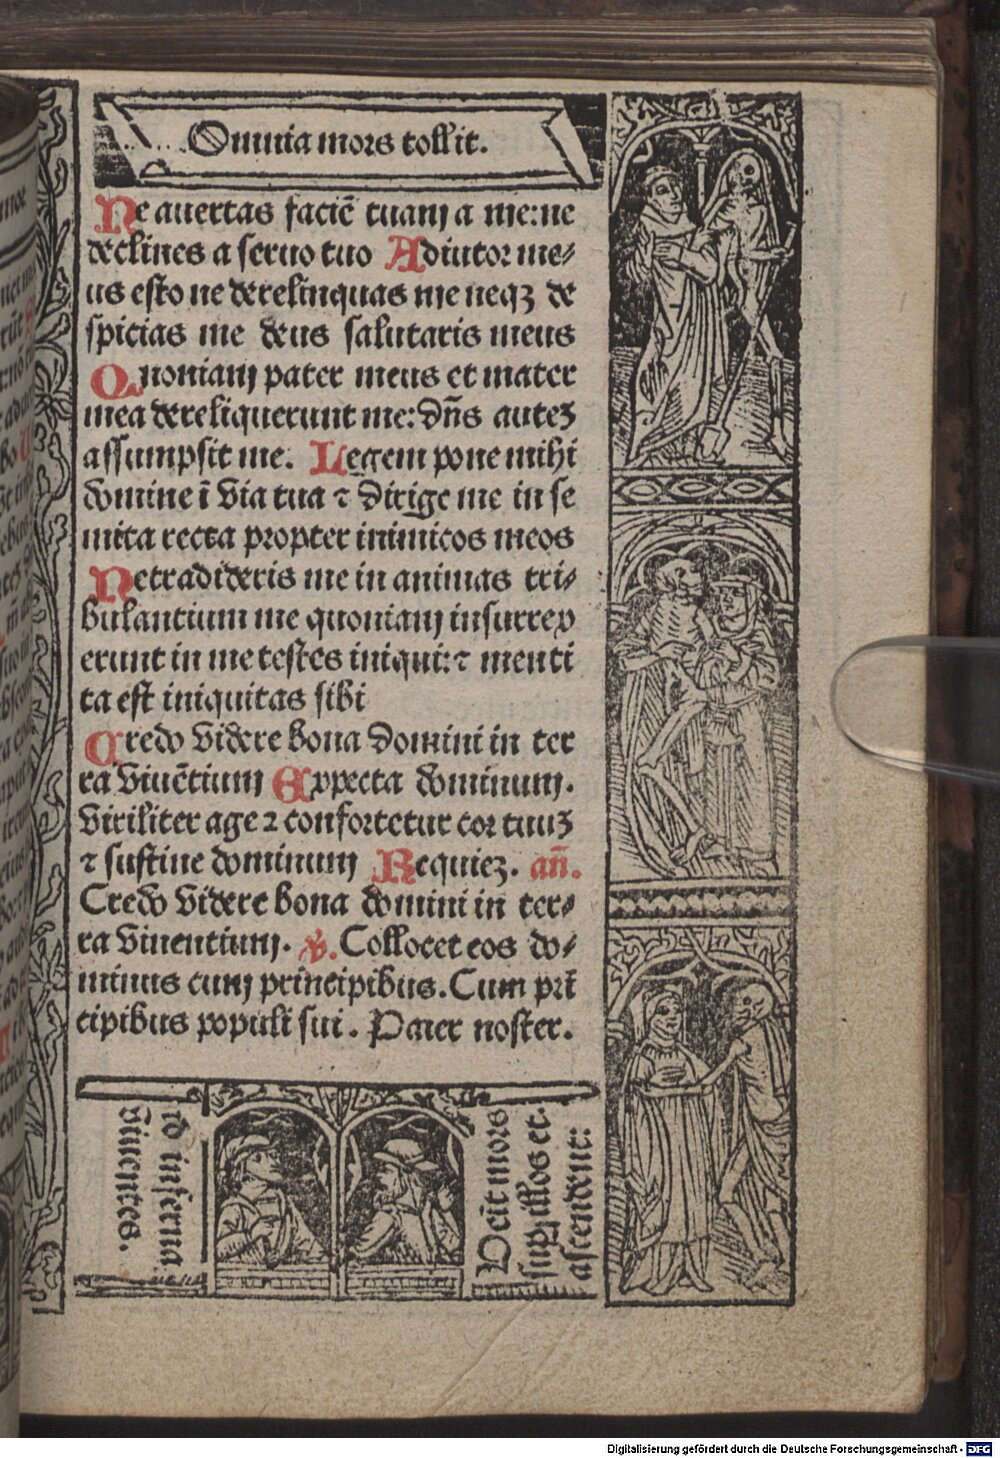 Omnia mors tollit.
Ne auertas faciē tuam a me:ne
declines a seruo tuo Adiutor me⸗
us esto ne derelinquas me neqꝫ de
spicias me deus salutaris meus
Quoniam pater meus et mater
mea dereliquerunt me: dn̄s auteꝫ
assumpsit me. Legem pone mihi
domine ī via tua ⁊ dirige me in se
mita recta propter inimicos meos
Ne tradideris me in animas tri⸗
bulantium me quoniam insurrex
erunt in me testes iniqui:⁊ menti
ta est iniquitas sibi
Credo videre bona domini in ter
ra viuētium Expecta dominum.
viriliter age ⁊ confortetur cor tuuꝫ
⁊ sustine dominum Requieꝫ. an̄.
Credo videre bona domini in ter⸗
ra viuentium. ℣. Collocet eos do⸗
minus cum principibus. Cum prī
cipibus populi sui. Pater noster.
Veīt mors
sup illos et.
ascendent:
īo inferna
viuentes.
Digitalisierung gefördert durch die Deutsche Forschungsgemeinschaft - DFG